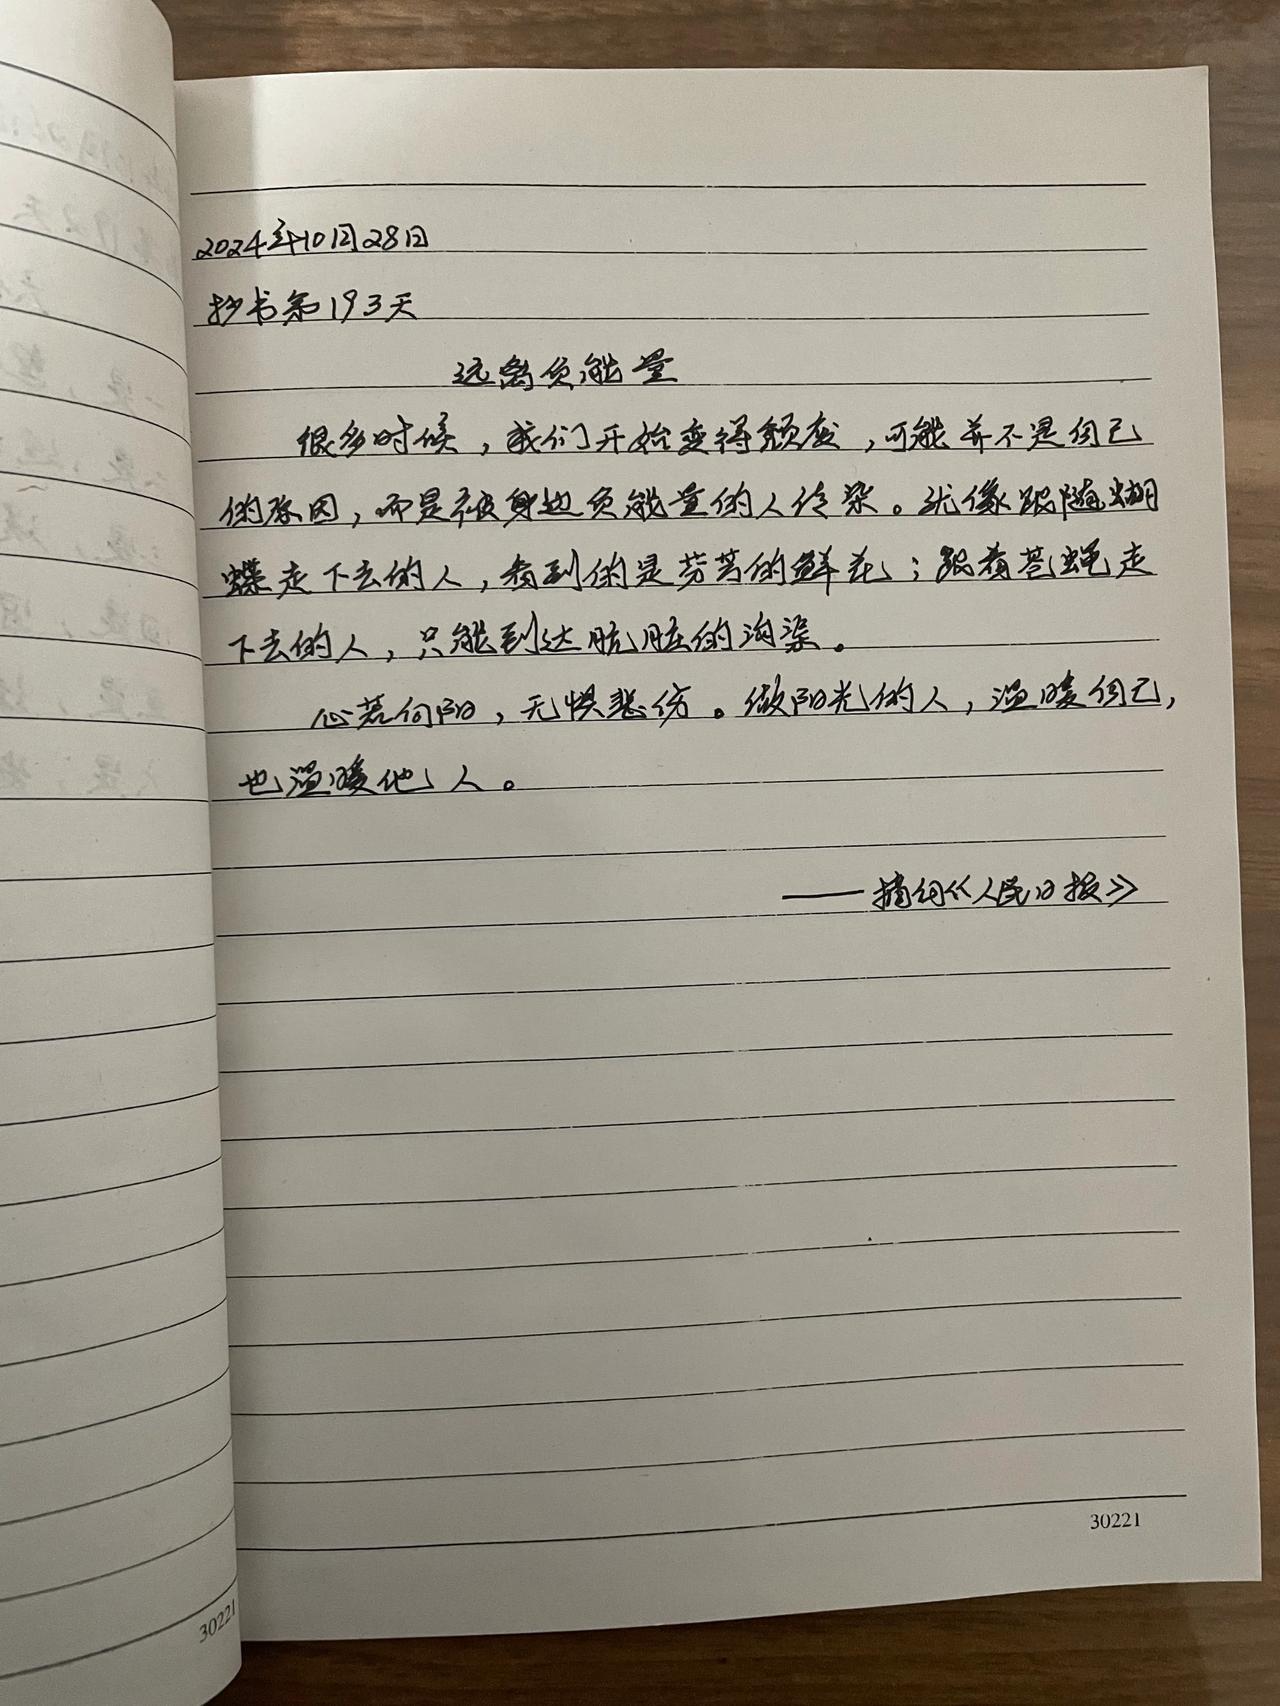 2024年10月28日
抄书第193天
远离负能量
很多时候，我们开始变得颓废，可能并不是自己
的原因，而是被身边负能量的人传染。就像跟随蝴
蝶走下去的人，看到的是芬芳的鲜花；跟着苍蝇走
下去的人，只能到达肮脏的沟渠。
心若向阳，无惧悲伤。做阳光的人，温暖自己，
也温暖他人。
——摘自《人民日报》
30221
30221